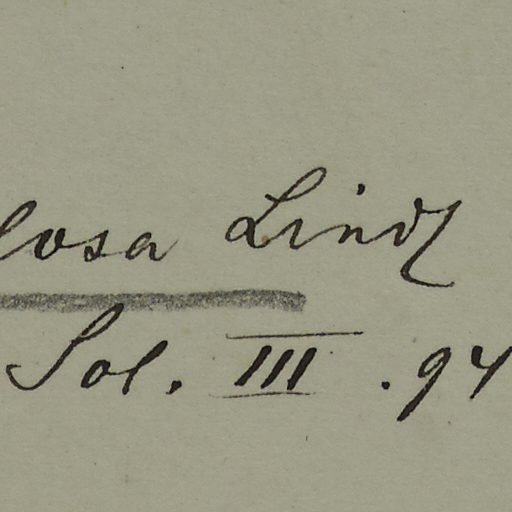 losa Lindl
Sol. III. 94